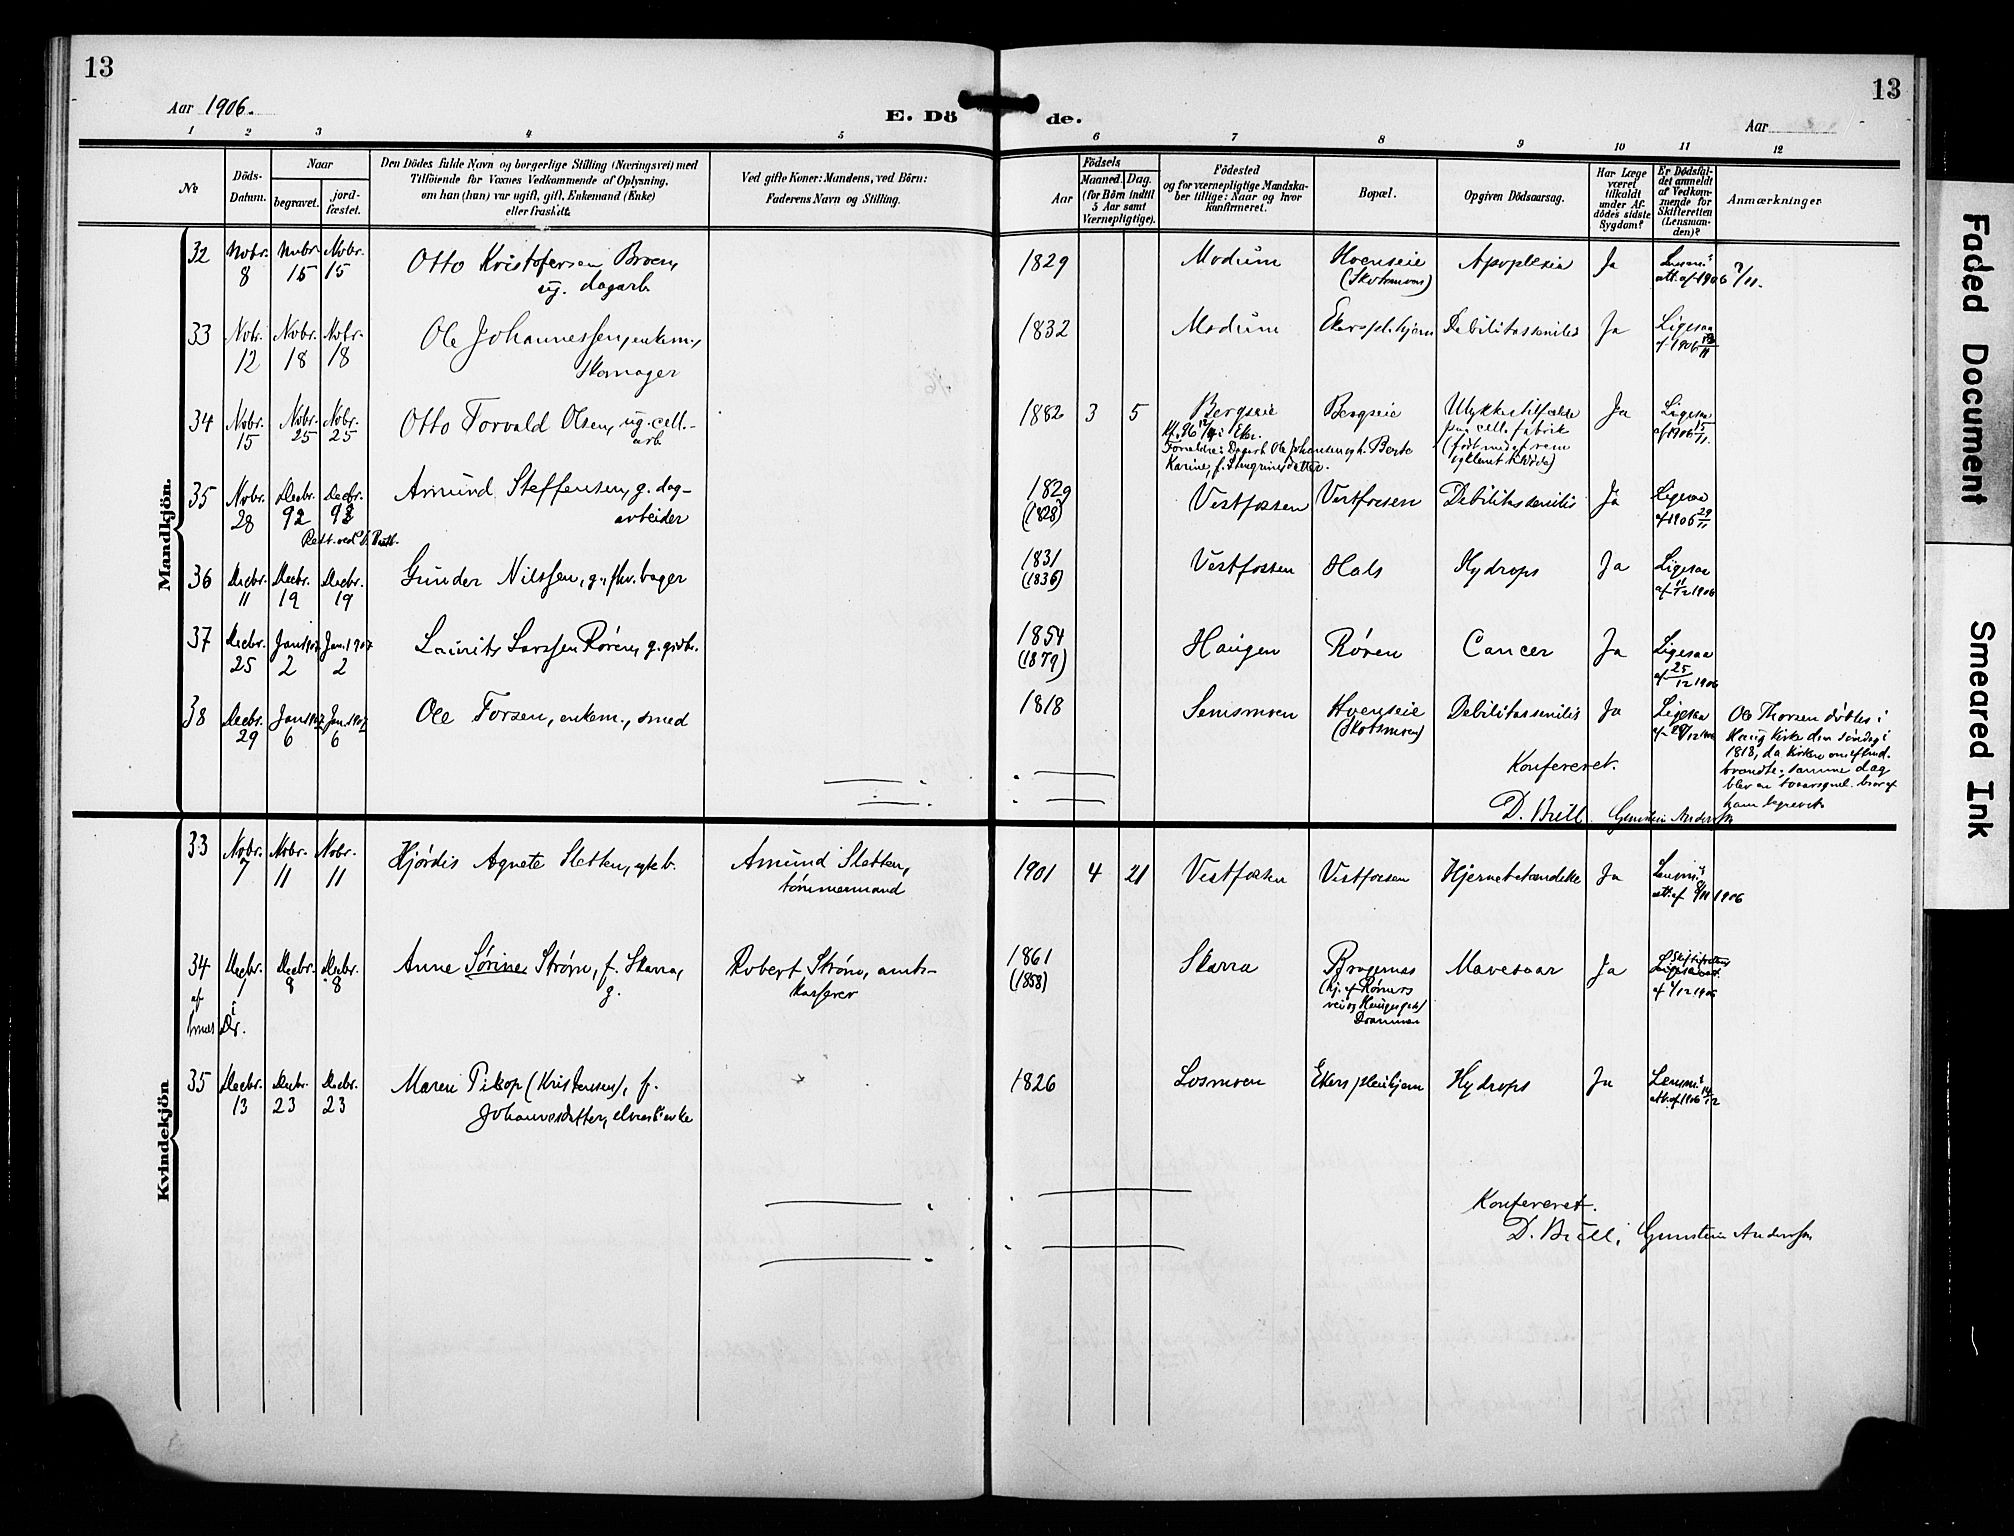 13
13
Aar 1906.
E. Dö
de.
Aar
1 2 3 4 5 6 7 8 9 10 11 12
No
Döds-
Datum.
Naar
begravet.
jord-
fæstet.
Den Dödes fulde Navn og borgerlige Stilling (Næringsvei) med
Tilföiende for Voxnes Vedkommende af Oplysning,
om han (hun) var ugift, gift, Enkemand (Enke)
eller fraskilt.
Ved gifte Koner: Mandens, ved Börn:
Faderens Navn og Stilling.
Födsels
Aar
Maaned. Dag.
(for Börn indtil
5 Aar samt
Værnepligtige).
Födested
og for værnepligtige Mandska-
ber tillige: Naar og hvor
konfirmeret.
Bopæl.
Opgiven Dödsaarsag.
Har Læge
været
tilkaldt
under Af-
dödes sidste
Sygdom?
Er Dödsfal-
det anmeldt
af Vedkom-
mende for
Skifteretten
(Lensman-
den)?
Anmærkninger
Mandkjön.
32 Novbr. 8 Novbr. 15 Novbr. 15 Otto Kristofersen Broen, ug. dagarb. 1829 Modum Hoenseie (Skotsmoen) Apoplexia Ja Lensm.s att. af 1906 9/11.
33 Novbr. 12 Novbr. 18 Novbr. 18 Ole Johannessen, enkem., skomager 1832 Modum Ekers pleihjem Debilitas senilis Ja Ligesaa af 1906
34 Novbr. 15 Novbr. 25 Novbr. 25 Otto Torvald Olsen, ug. cell.-arb 1882 3 5 Bergseie Bergseie Ulykkestilfælde paa cell. fabrik Ja Ligesaa af 1906 15/11.
Karine, f. Stengrimsdatter.
35 Novbr. 28 Decbr. 9 Decbr. 9 Amund Steffensen, g. dag-
arbeider 1829 (1828) Vestfossen Vestfossen Debilitas senilis Ja Ligesaa af 1906 29/11
36 Decbr. 11 Decbr. 19 Decbr. 19 Gunder Nilssen, g., fhv. bager 1831 (1836) Vestfossen Hals Hydrops Ja Ligesaa af 11/12 1906
37 Decbr. 25 Jan. 1907 2 Jan. 1907 2 Laurits Larssen Røren, g. grdbr. 1854 (1879) Haugen Røren Cancer Ja Ligesaa af 25/12 1906
38 Decbr. 29 Jan. 1907 6 Jan. 1907 6 Ole Torsen, enkem., smed 1818 Semsmoen Hoenseie (Skotsmoen) Debilitas senilis Ja Ligesaa
Ole Thorsen døbtes i
Haug Kirke den søndag i
1818, da kirken om eftmd.
brændte; samme dag
blev en toaarsgml. bror af
ham begravet.
Konfereret.
D. Bull Gunstein Anderssen
Kvindekjön
33 Novbr. 7 Novbr. 11 Novbr. 11 Hjørdis Agnete Sletten, egteb. Amund Sletten,
tømmermand 1901 4 21 Vestfossen Vestfossen Hjernebetændelse Ja Lensm.s att. af 8/11 1906
34 Decbr. 1 Decbr. 8 Decbr. 8 Anne Sørine Strøm, f. Skarra,
g. Robert Strøm, amts-
kasserer 1861 (1858) Skarra Bragernes (hj. af Rømers
vei og Haugesgate)
Drammen Mavesaar Ja
35 Decbr. 13 Decbr. 23 Decbr. 23 Maren Piltop (Kristensen), f.
Johannesdatter, enke 1826 Losmoen Ekers pleiehjem Hydrops Ja Lensm.s att. af 1906
Konfereret.
D. Bull. Gunstein Anderssen
Faded Document
Smeared Ink